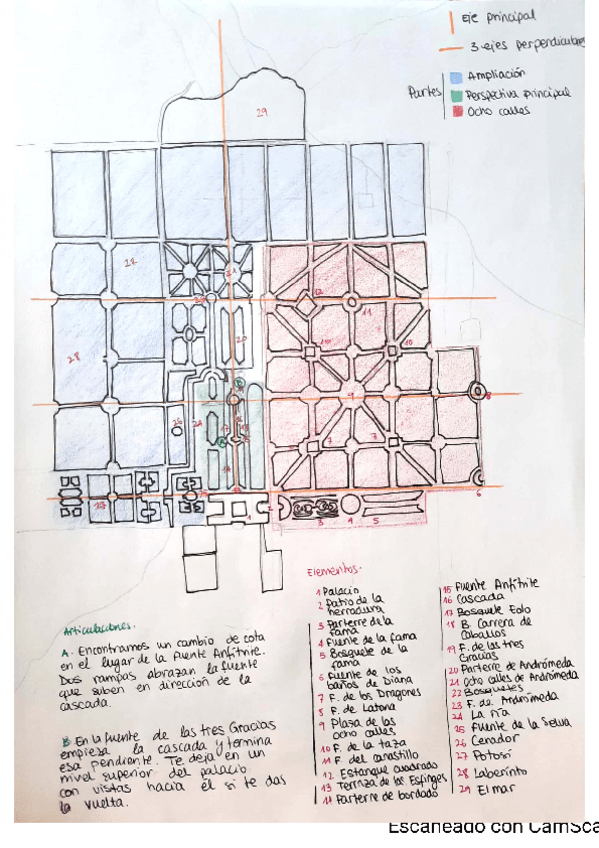 Eje principal
3 ejes perpendiculares
Partes
Ampliación
Perspectiva principal
Ocho calles
Articulaciones.
A. Encontramos un cambio de cota
en el lugar de la Fuente Anfitrite.
Dos rampas abrazan la fuente
que suben en dirección de la
cascada.
B En la fuente de las tres Gracias
empieza la cascada y termina
esa pendiente. Te deja en un
nivel superior del palacio
con vistas hacia él si te das
la vuelta.
Elementos.
1 Palacio
2 Patio de la
herradura
3 Parterre de la
fama
4 Fuente de la fama
5 Bosquete de la
fama
6 Fuente de los
baños de Diana
7 F. de los Dragones
8 F. de Latona
9 Plaza de las
ocho calles
10 F. de la taza
11 F. del canastillo
12 Estanque cuadrado
13 Terraza de las Esfinges
14 Parterre de bordado
15 Fuente Anfitrite
16 Cascada
17 Bosquete Eolo
18 B. Carrera de
Caballos
19 F. de las tres
Gracias
20 Parterre de Andrómeda
21 Ocho calles de Andrómeda
22 Bosquetes
23 F. de Andrómeda
24 La ría
25 Fuente de la Selva
26 Cenador
27 Potosí
28 Laberinto
29 El mar
Escaneado con CamSca